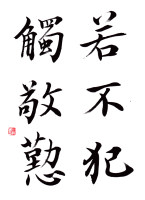 若不犯
觸敬懃